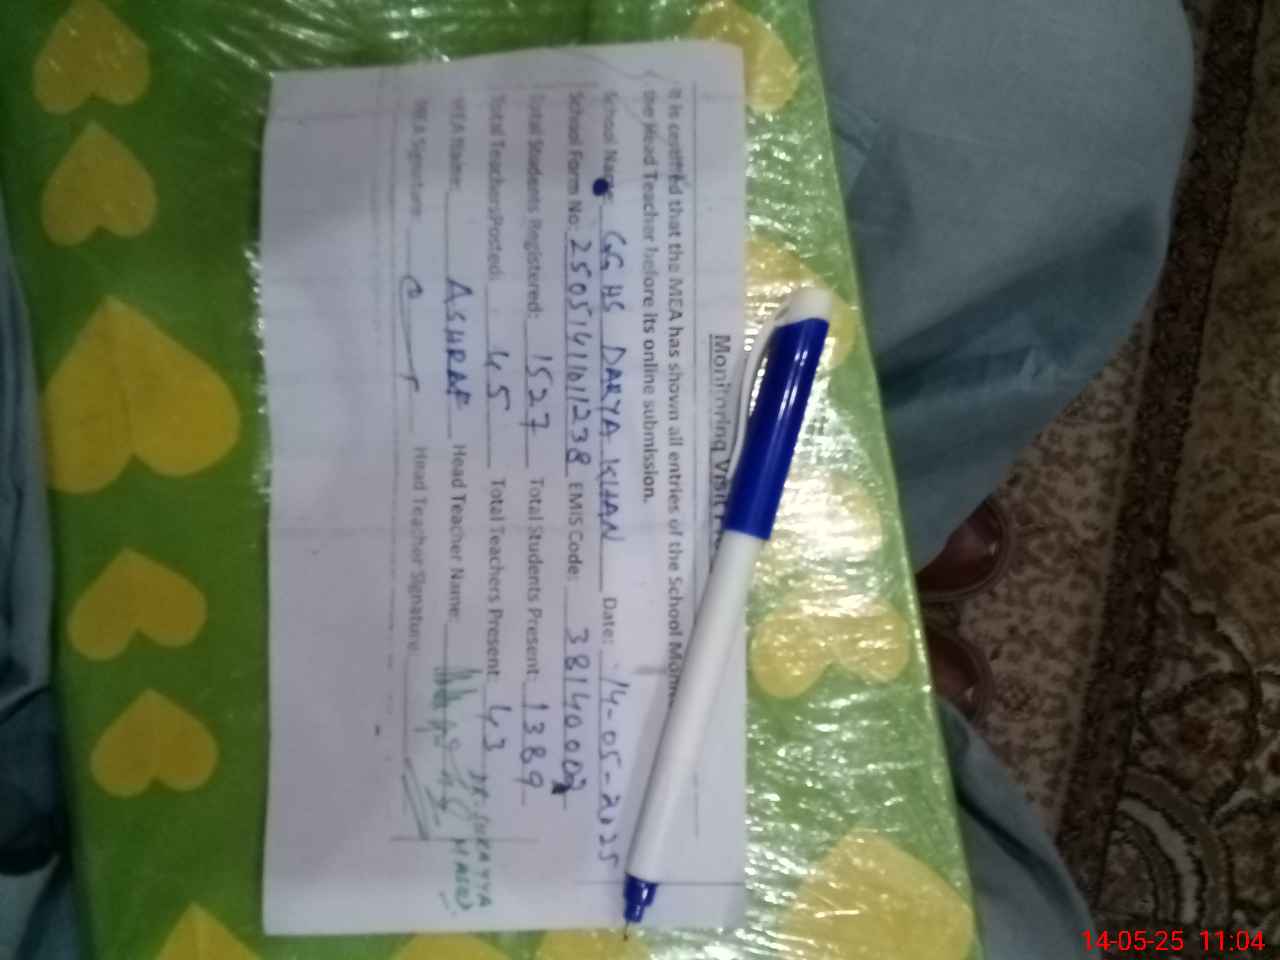 Monitoring Visit
It is certified that the MEA has shown all entries of the School
the Head Teacher before its online submission.
School Name: GGHS DARYA KHAN Date: 14-05-2025
School Form No: 25051411011238 EMIS Code: 3814000
Total Students Registered: 1527 Total Students Present: 1389
Total Teachers Posted: 45 Total Teachers Present: 43
MEA Name: ASHRAF Head Teacher Name:
MEA Signature: Head Teacher Signature:
14-05-25 11:04